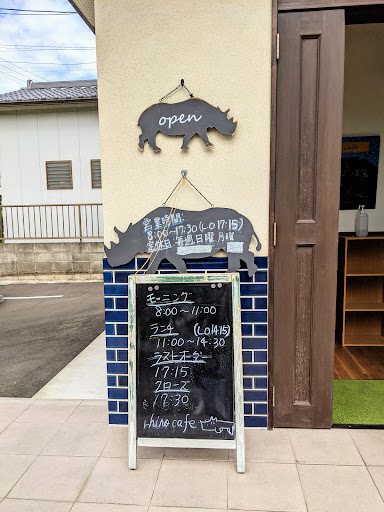 open
営業時間
8:00~17:30(LO17:15)
定休日 毎週日曜 月曜
モーニング
8:00~11:00
ランチ (LO14:15)
11:00~14:30
ラストオーダー
17:15
クローズ
17:30
rhino cafe
cafe